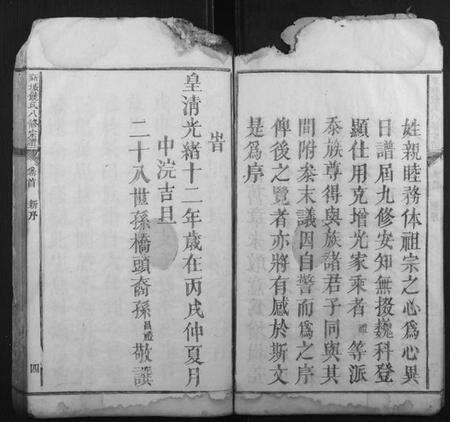 姓親睦務体祖宗之心爲心異
日譜届九修安知無掇巍科登
顯仕用克增光家乘者禮等派
忝族尊得與族諸君子同與其
間附叅末議因自警而爲之序
俾後之覽者亦將有感於斯文
是爲序
旹
皇清光緒十二年歲在丙戌仲夏月
中浣吉旦
二十八世孫橋頭裔孫昌禮敬譔
氏八修宗譜
卷首
新序
四